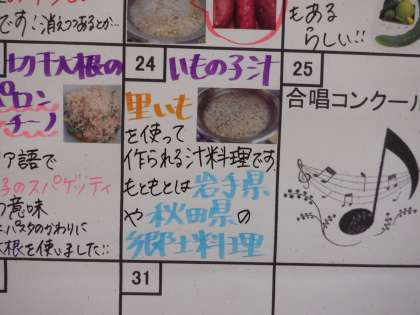 です!消えつあるとか…
もある
らしい!!
切干大根の
ペペロン
チーノ
ア語で
子のスパゲッティ
の意味
パスタのかわりに
大根を使いました!!
24
いもの子汁
里いも
を使って
作られる汁料理です。
もともとは岩手県
や秋田県の
郷土料理
25
合唱コンクール
31